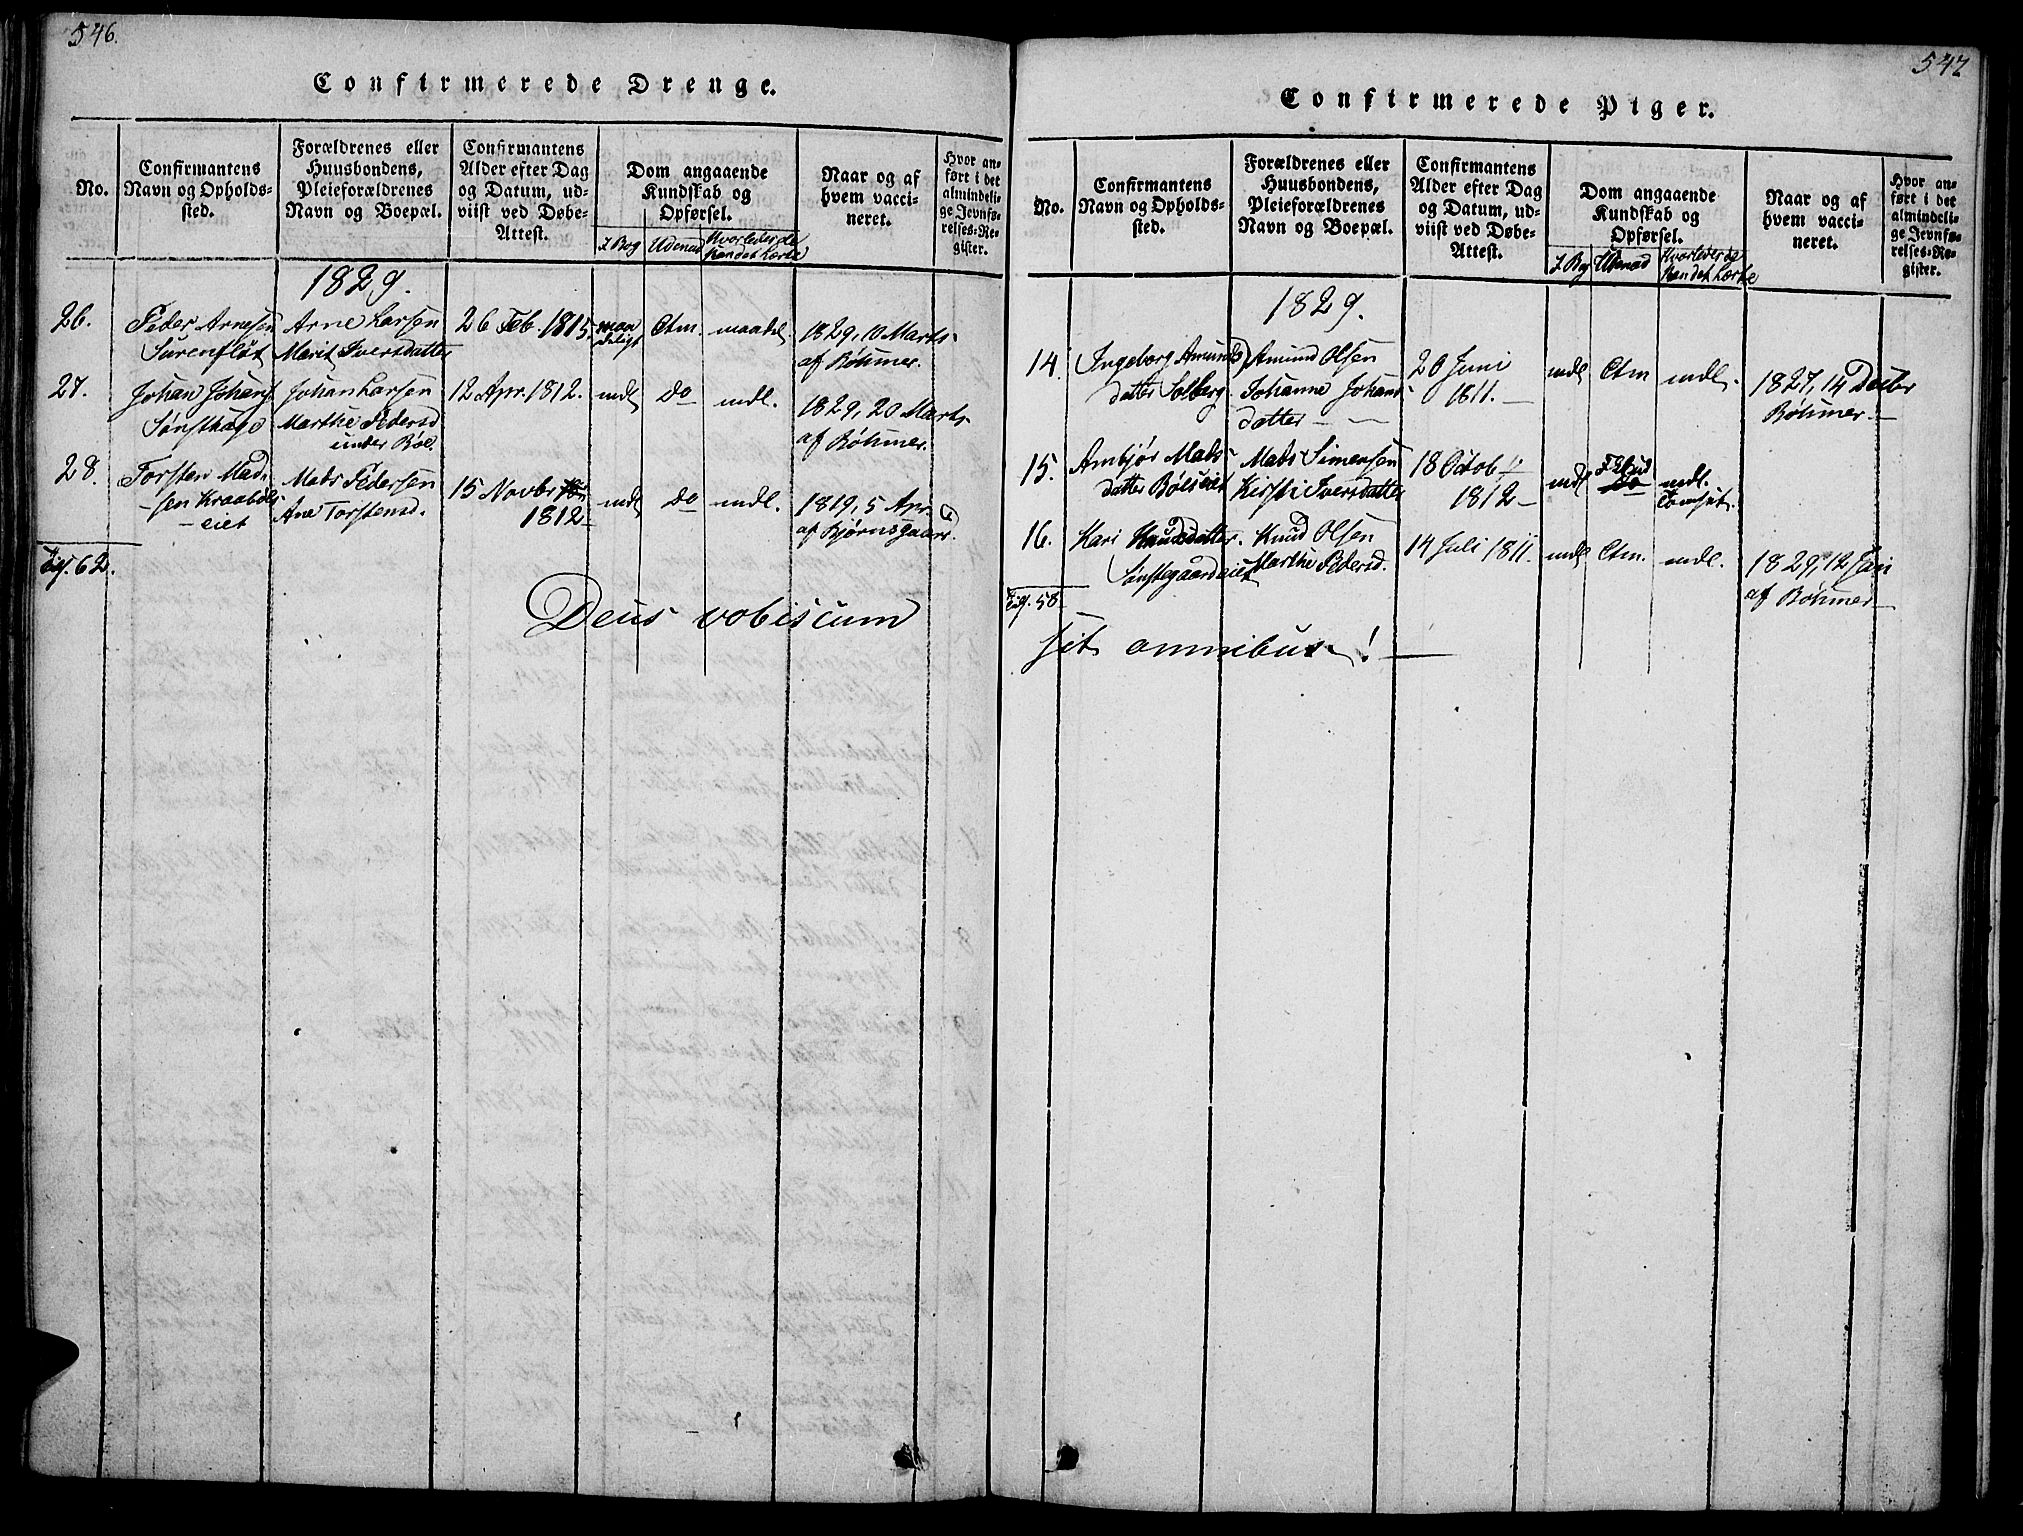 546.
Confirmerede Drenge.
No.
Confirmantens
Navn og Opholds-
sted.
Forældrenes eller
Huusbondens,
Pleieforældrenes
Navn og Boepæl.
Confirmantens
Alder efter Dag
og Datum, ud-
viist ved Døbe-
Attest.
Dom angaaende
Kundskab og
Opførsel.
I Bog
Udenad
Hvorledes de
kendet Lærte
Naar og af
hvem vacci-
neret.
Hvor an-
ført i det
almindeli-
ge Jevnfø-
relses-Re-
gister.
1829.
26.
Peder Arnesen
Surenfløt
Arne Larsen
Marit Iversdatter
26 Feb. 1815
maa
deligt
Ctm.
maadel
1829, 10 Marts
af Bøhmer.
27.
Johan Johans
Sønsthage
Johan Larsen
Marthe Pedersd
under Bøe.
12 Apr. 1812.
mdl
do
mdl.
1829, 20 Marts
af Bøhmer.
28.
Torsten Mad-
sen Kraabøls
-eiet
Mads Pedersen
Ane Torstensd.
15 Novbr
1812
mdl
do
mdl.
1819, 5 Apr.
af Bjørnsgaard.
62.
Deus vobiscum
547
Confirmerede Piger.
No.
Confirmantens
Navn og Opholds-
sted.
Forældrenes eller
Huusbondens,
Pleieforældrenes
Navn og Boepæl.
Confirmantens
Alder efter Dag
og Datum, ud-
viist ved Døbe-
Attest.
Dom angaaende
Kundskab og
Opførsel.
I Bog
Udenad
Hvorledes de
kendet Lærte
Naar og af
hvem vacci-
neret.
Hvor an-
ført i det
almindeli-
ge Jevnfø-
relses-Re-
gister.
1829.
14.
Ingeborg Amunds
datter Solberg
Amund Olsen
Johanne Johans
datter
20 Juni
1811.
mdl
Ctm
mdl.
1827, 14 Decbr
Bøhmer
15.
Ambjør Mads-
datter Bølseiet
Mads Simensen
Kirsti Iversdatter
18 Octob
1812
mdl
do
mdl.
16.
Kari Knudsdatter.
Sønstegaardeiet
Knud Olsen
Marthe Pedersd.
14 Juli 1811.
mdl
Ctm.
mdl.
1829, 12 Jan
af Bøhmer
58
sit omnibus!